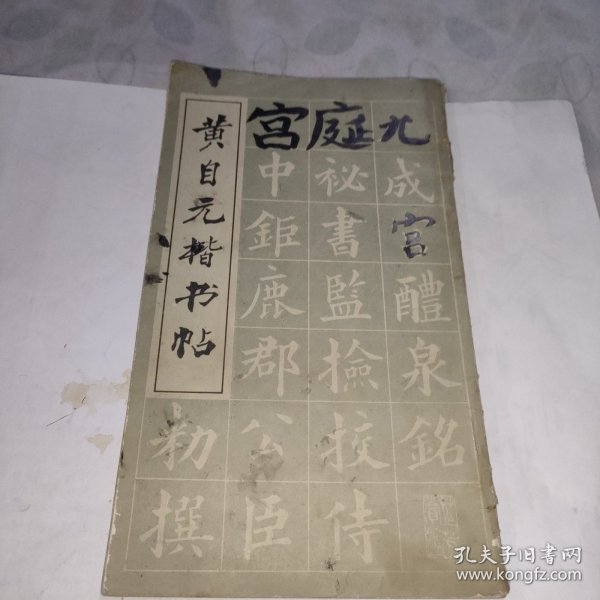 黄自元楷书帖
九成宫醴泉銘
庭祕書監撿挍侍
宫中鉅鹿郡公臣
勑撰
孔夫子旧书网
www.kongfz.com